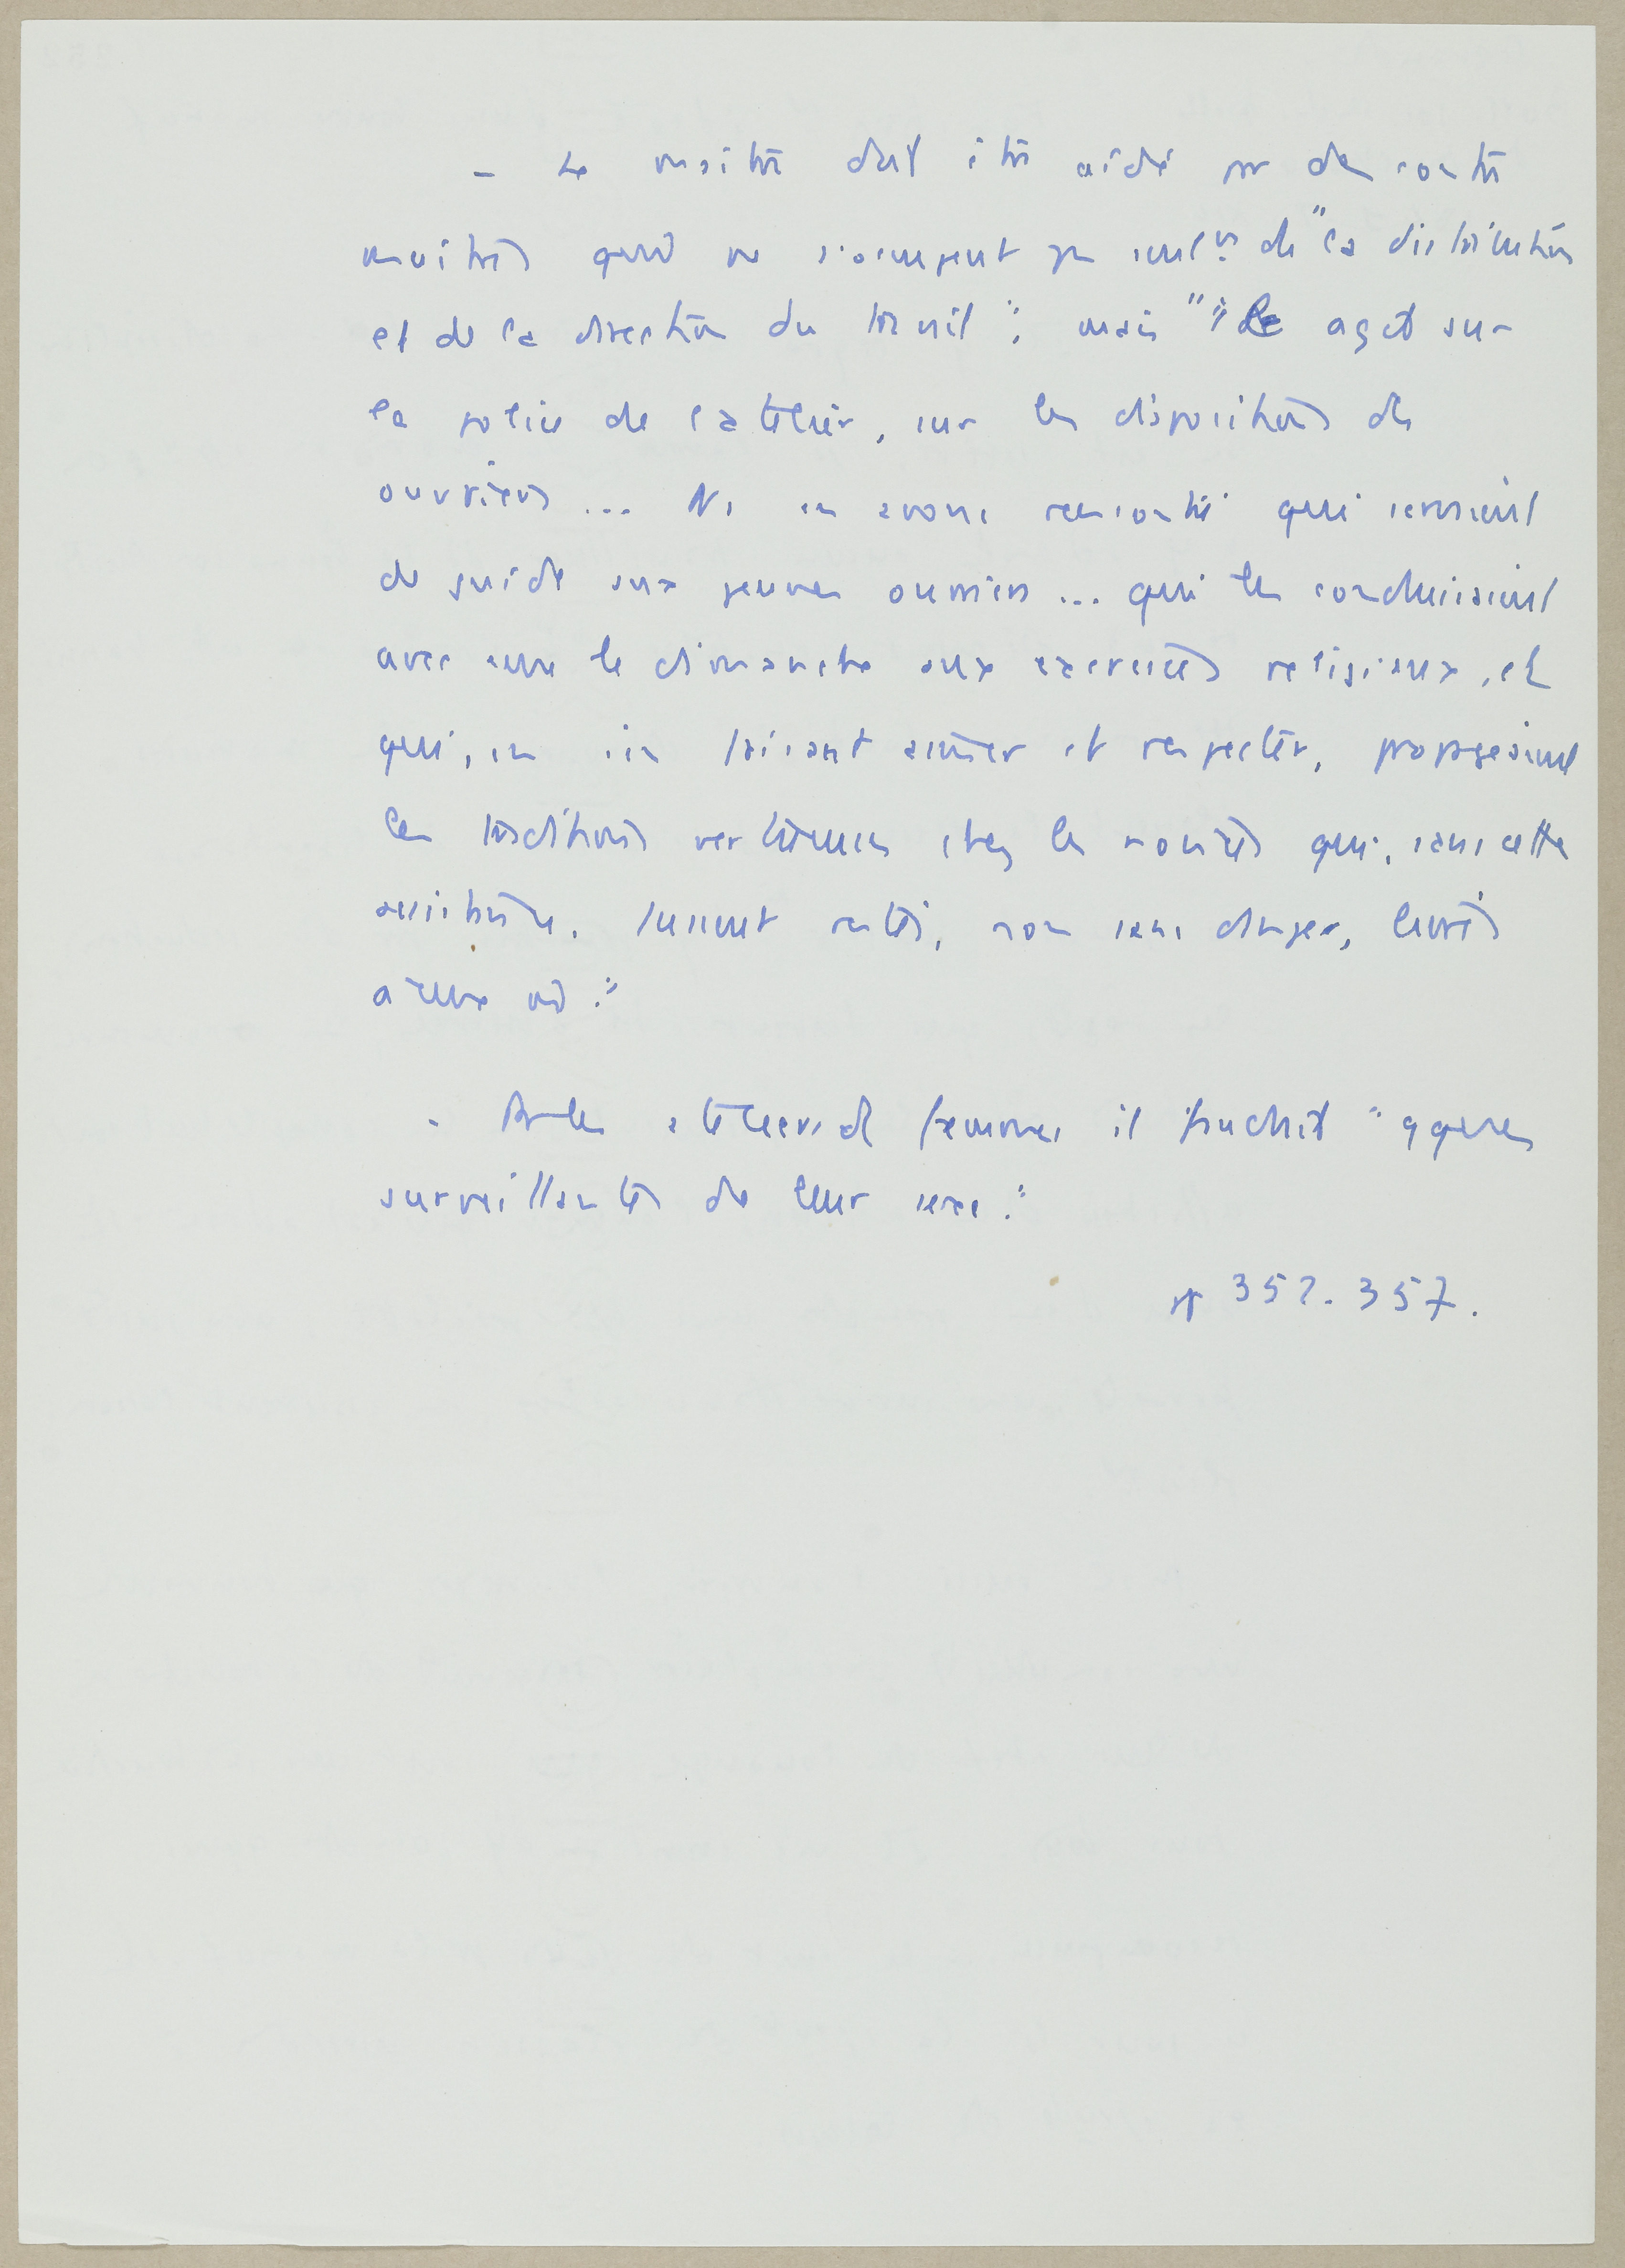 - Le maître doit être aidé par des contre
maîtres qui ne s'occupent pas seulᵗ de "la distribution
et de la direction du travail"; mais "
la police de l'atelier, sur les dispositions des
ouvriers ... Ns en avons rencontré qui servaient
de guide aux jeunes ouvriers ... qui les conduisaient
avec eux le dimanche aux exercices religieux, et
qui, en se faisant aimer et respecter, propageaient
les traditions vertueuses chez les novices qui, sans cette
assistance, fussent restés, non sans danger, livrés
à eux mêmes."
- les ateliers de femmes il faudrait "qques
surveillantes de leur sexe."
pp 352-357.